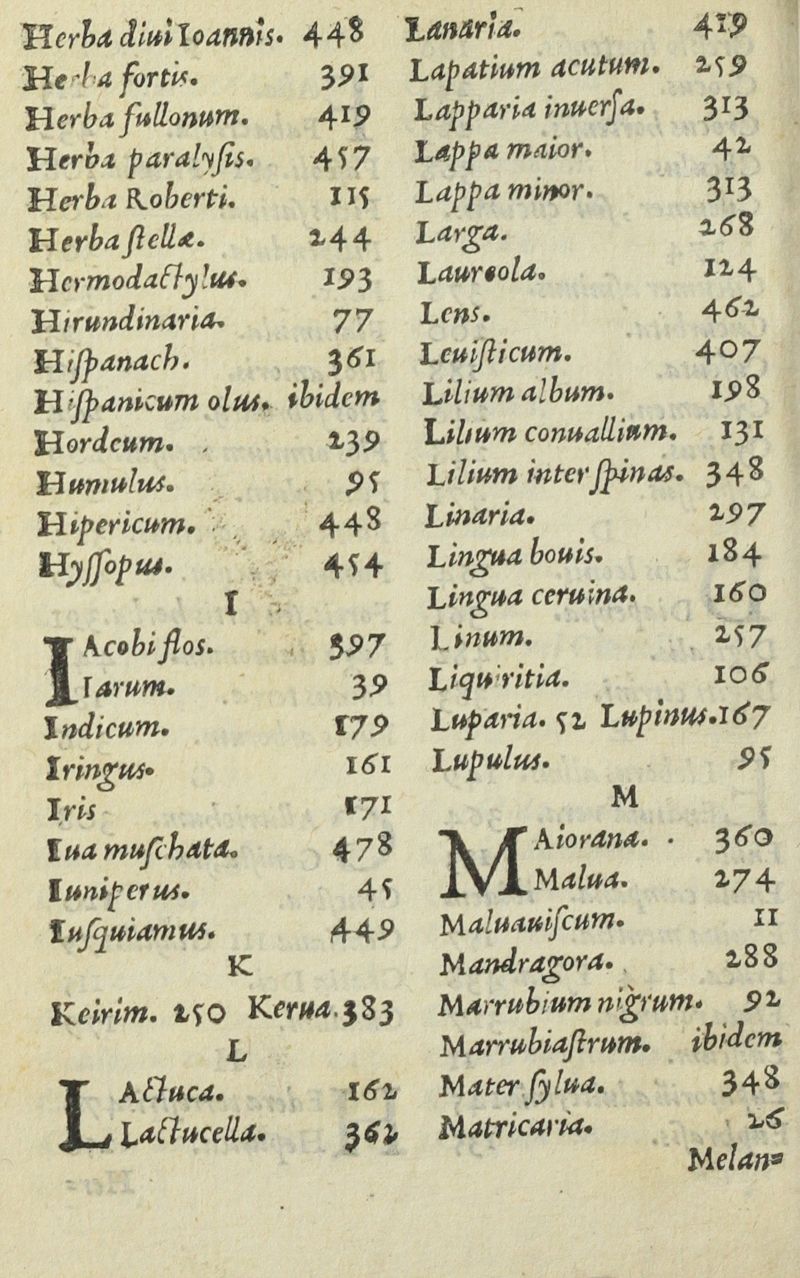 Herba diui Ioannis. 448
Herba fortis. 391
Herba fullonum. 419
Herba paralysis. 457
Herba Roberti. 115
Herba stellæ. 244
Hermodactylus. 193
Hirundinaria. 77
Hispanach. 361
Hispanicum olus. ibidem
Hordeum. 239
Humulus. 95
Hipericum. 448
Hyssopus. 454
I
IAcobi flos. 397
Iarum. 39
Indicum. 179
Iringus. 161
Iris 171
Iua muschata. 478
Iuniperus. 45
Iusquiamus. 449
K
Keirim. 250 Kerua. 383
L
LActuca. 162
Lactucella. 362
Lanaria. 419
Lapatium acutum. 259
Lapparia inuersa. 313
Lappa maior. 42
Lappa minor. 313
Larga. 268
Laureola. 124
Lens. 462
Leuisticum. 407
Lilium album. 198
Lilium conuallium. 131
Lilium inter spinas. 348
Linaria. 297
Lingua bouis. 184
Lingua ceruina. 160
Linum. 257
Liquiritia. 106
Luparia. 52 Lupinus. 167
Lupulus. 95
M
MAiorana. 360
Malua. 274
Maluauiscum. 11
Mandragora. 288
Marrubium nigrum. 92
Marrubiastrum. ibidem
Mater sylua. 348
Matricaria. 26
Melan-